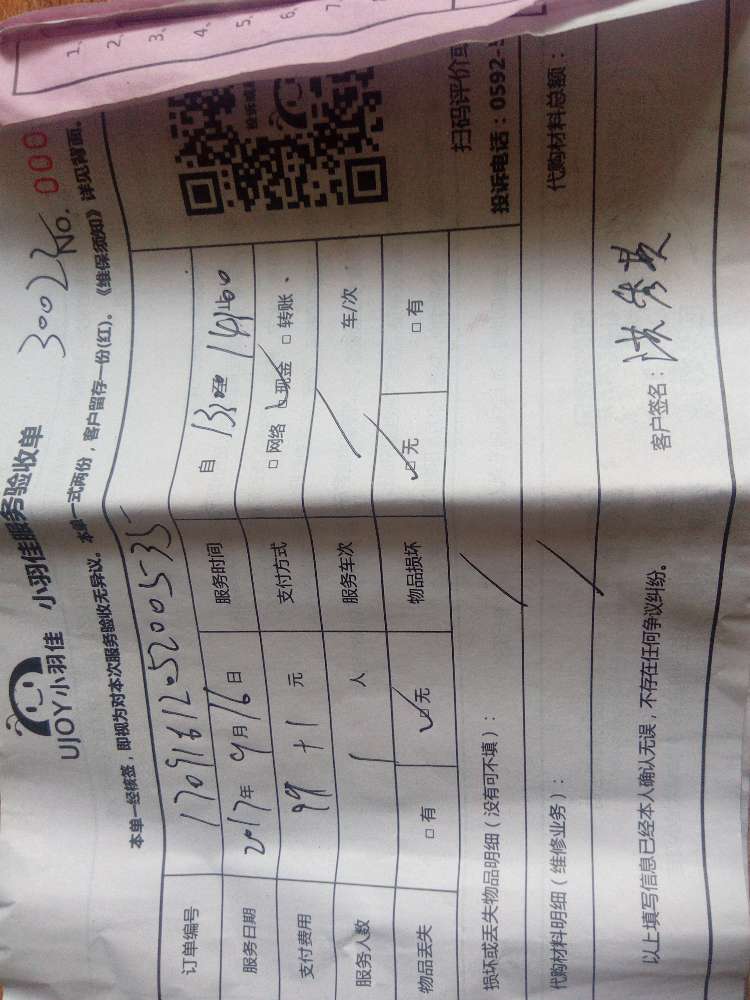 UJOY小羽佳 小羽佳服务验收单
No. 000
本单一经核签，即视为对本次服务验收无异议。本单一式两份，客户留存一份(红)。《维保须知》详见背面。
订单编号 1709161205200535
服务日期 2017年9月16日 服务时间 自
支付费用 99+1 元 支付方式 □网络 □现金 □转账
服务人数 1 人 服务车次 / 车/次
物品丢失 □有 □无 物品损坏 □无 □有
损坏或丢失物品明细（没有可不填）：
代购材料明细（维修业务）：
代购材料总额：
以上填写信息已经本人确认无误，不存在任何争议纠纷。
客户签名：
扫码评价或
投诉电话：0592-5
1、
2、
3、
4、
5、
6、
7、